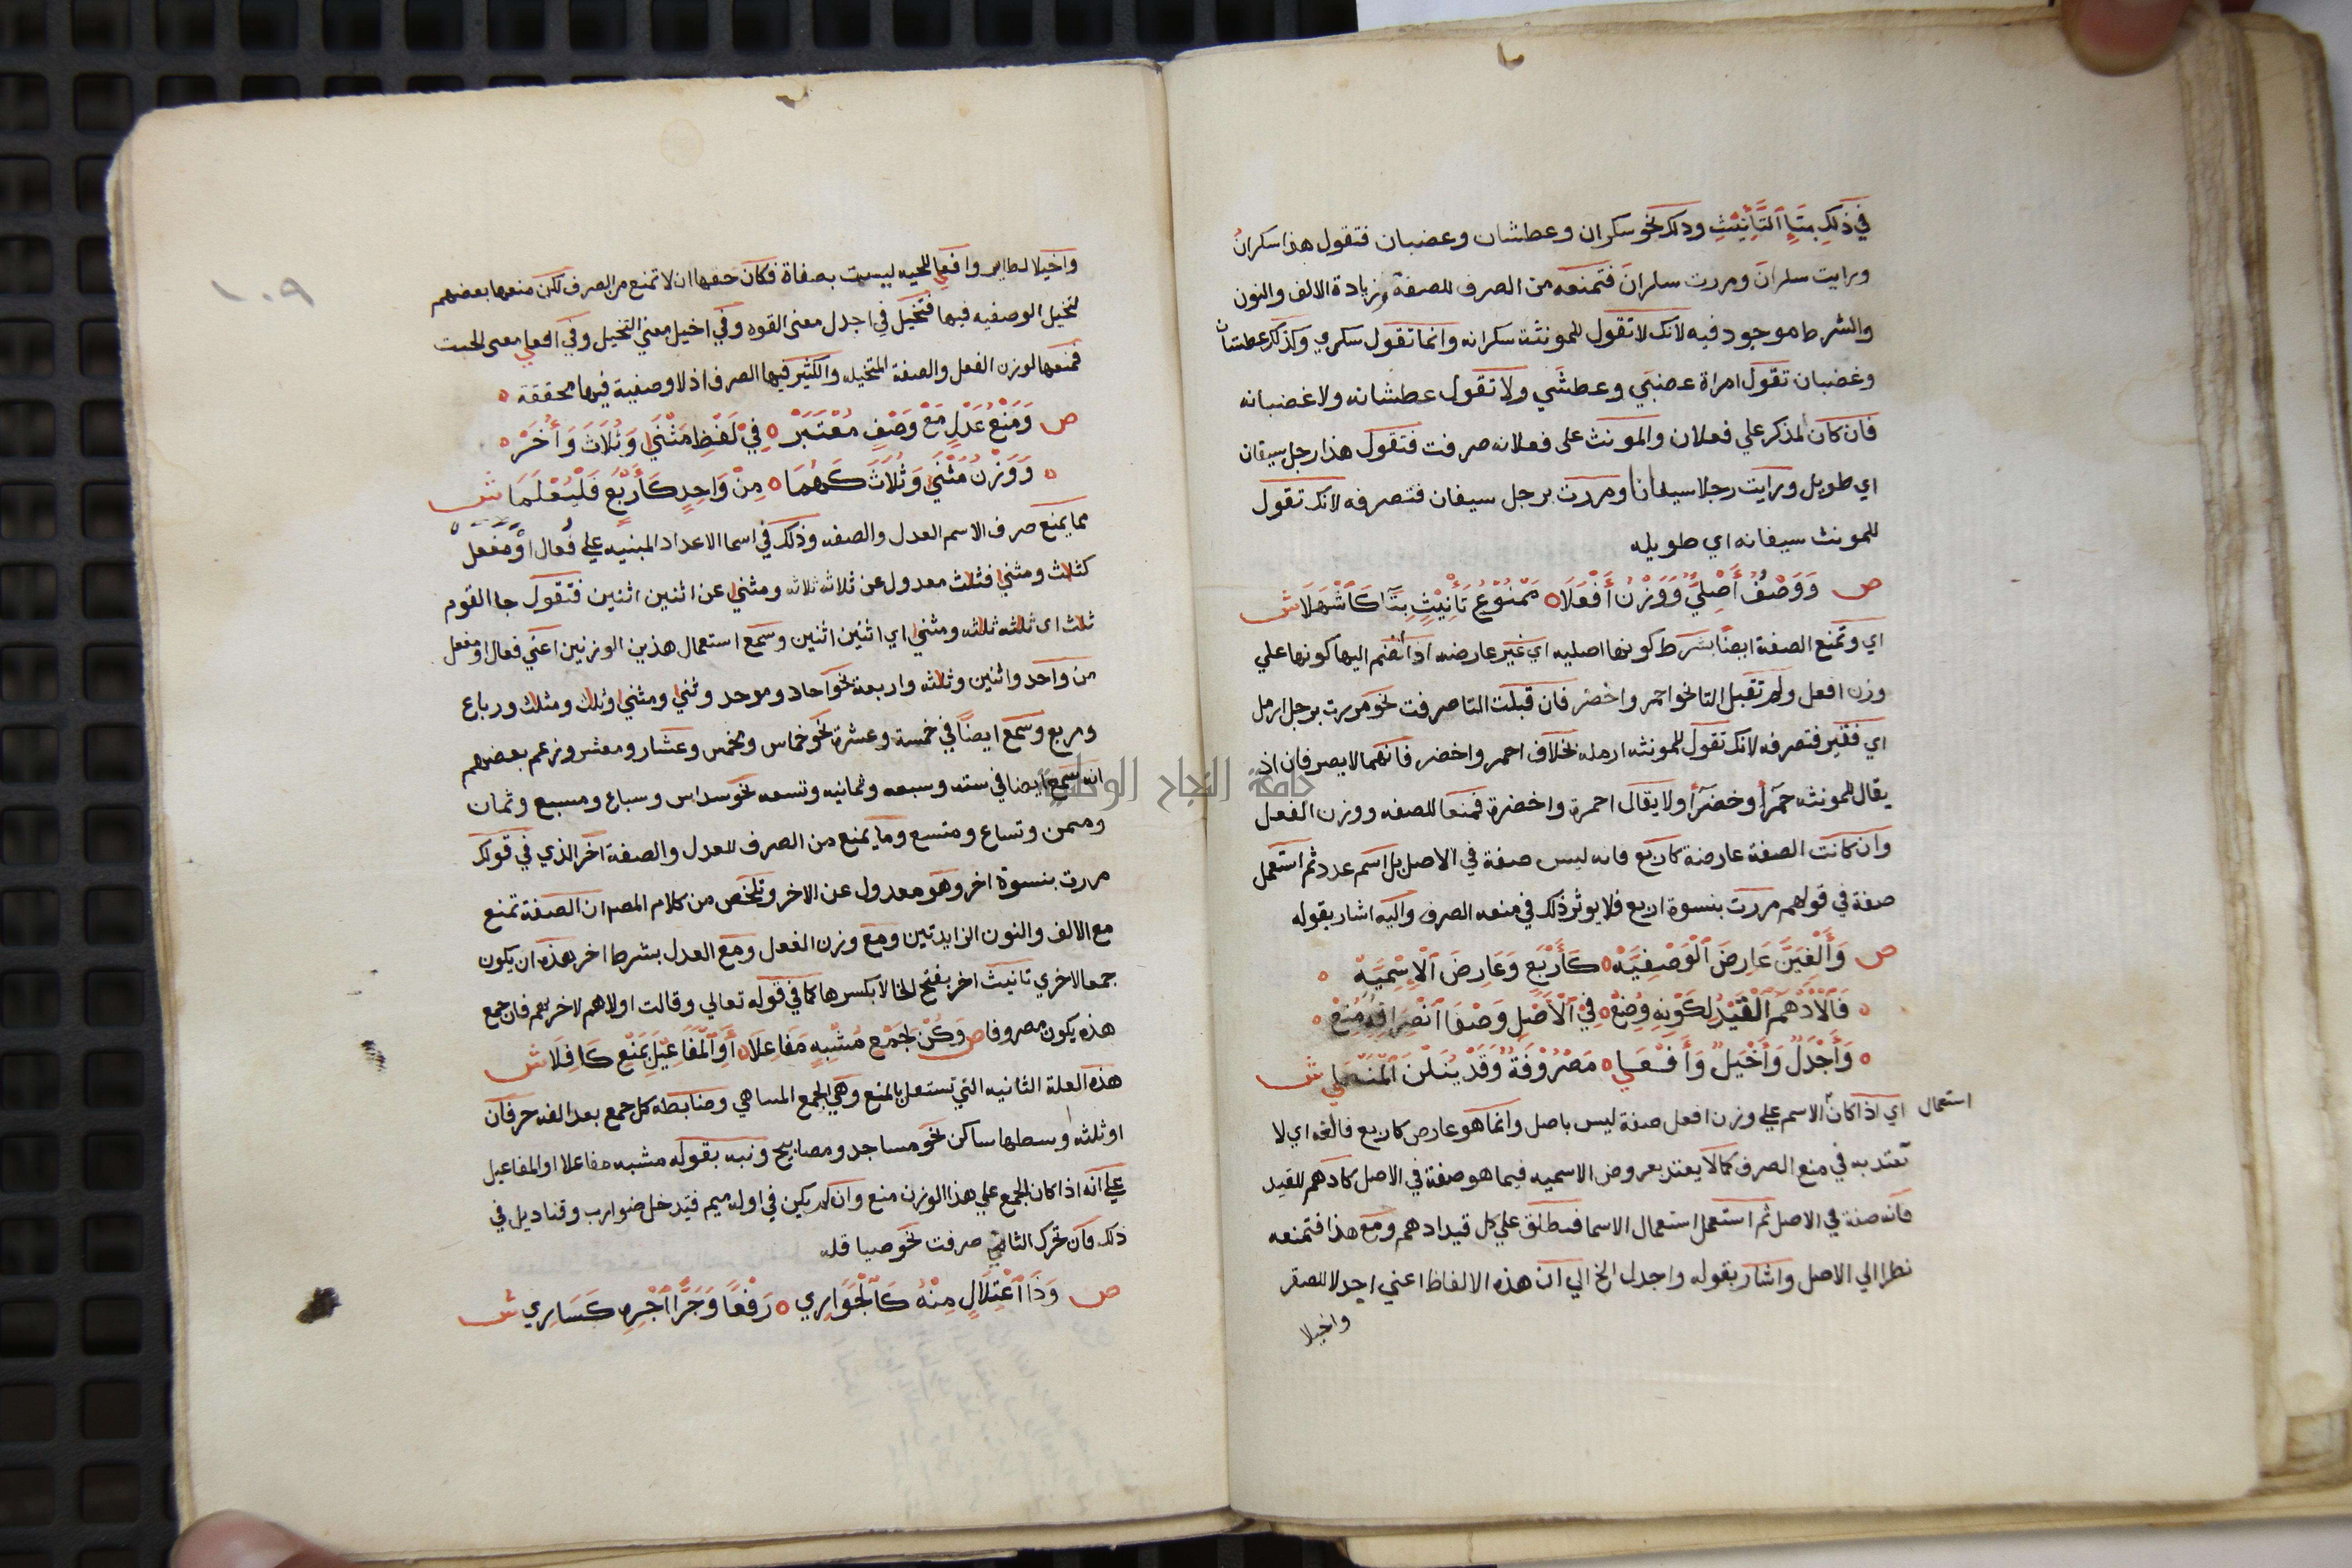 في ذلك بتاء التأنيث وذلك نحو سكران وعطشان وعضبان فتقول هذا سكران
ورايت سكران ومررت سكران فتمنعه من الصرف للصفة وزيادة الالف والنون
والشرط موجود فيه لانك لا تقول للمونثة سكرانه وانما تقول سكري وكذلك عطشان
وغضبان تقول امراة عضبي وعطشي ولا تقول عطشانه ولا غضبانه
فان كان المذكر علي فعلان والمونث على فعلانه صرفت فتقول هذا رجل سيفان
اي طويل ورايت رجلا سيفانا ومررت برجل سيفان فتصرفه لانك تقول
للمونث سيفانه اي طويله
ص وَوَصْفٌ أَصْلِيٌّ وَوَزْنُ أَفْعَلَا مَمْنُوْعُ تَأْنِيْثٍ بِتَا كَأَشْهَلَا ش
اي وتمنع الصفة ايضا بشرط كونها اصليه اي غير عارضه اذا انضم اليها كونها علي
وزن افعل ولم تقبل التا نحو احمر واخضر فان قبلت التا صرفت نحو مررت برجل ارمل
اي فقير فتصرفه لانك تقول للمونثه ارمله بخلاف احمر واخضر فانهما لا يصرفان اذ
يقال للمونثه حمرآ وخضرآ ولا يقال احمرة واخضرة فمنعا للصفه ووزن الفعل
وان كانت الصفة عارضة كاربع فانه ليس صفة في الاصل بل اسم عدد ثم استعمل
صفة في قولهم مررت بنسوة اربع فلا يوثر ذلك في منعه الصرف واليه اشار بقوله
ص وَأَلْغِيَنَّ عَارِضَ ٱلْوَصْفِيَّهْ كَأَرْبَعٍ وَعَارِضَ ٱلْاِسْمِيَّهْ
فَٱلْأَدْهَمُ ٱلْقَيْدُ لِكَوْنِهِ وُضِعْ فِيْ ٱلْأَصْلِ وَصْفًا ٱنْصِرَافُهُ مُنِعْ
وَأَجْدَلٌ وَأَخْيَلٌ وَأَفْعَي مَصْرُوْفَةٌ وَقَدْ يَنَلْنَ ٱلْمَنْعَا ش
استعمال
اي اذا كان الاسم علي وزن افعل صفة ليس باصل وانما هو عارض كاربع فالغه اي لا
تعتد به في منع الصرف كما لا يعتد بعروض الاسميه فيما هو صفة في الاصل كادهم للقيد
فانه صفة في الاصل ثم استعمل استعمال الاسما فيطلق علي كل قيد ادهم ومع هذا فتمنعه
نظرا الي الاصل واشار بقوله واجدل الخ الي ان هذه الالفاظ اعني اجدلا للصقر
واخيلا
١٠٩
واخيلا لطاير وافعي للحيه ليست بصفاة فكان حقها ان لا تمنع من الصرف لكن منعها بعضهم
لتخيل الوصفيه فيها فتخيل في اجدل معنى القوه وفي اخيل معني التخيل وفي افعي معنى الخبث
فمنعها لوزن الفعل والصفة المتخيله والكثير فيها الصرف اذ لا وصفية فيها محققة
ص وَمَنْعُ عَدْلٍ مَعَ وَصْفٍ مُعْتَبَرْ فِيْ لَفْظِ مَثْنَي وَثُلَاثَ وَأُخَرْ
وَوَزْنُ مَثْنَي وَثُلَاثَ كَهُمَا مِنْ وَاحِدٍ كَأَرْبَعٍ فَلْيُعْلَمَا ش
مما يمنع صرف الاسم العدل والصفه وذلك في اسما الاعداد المبنيه علي فُعال او مفعل
كثلاث ومثني فثلاث معدول عن ثلاثه ثلاثه ومثني عن اثنين اثنين فتقول جا القوم
ثلاث اى ثلثه ثلثه ومثني اي اثنين اثنين وسمع استعمال هذين الوزنين اعني فعال او مفعل
من واحد واثنين وثلثه واربعة نحو احاد وموحد وثني ومثني وثلاث ومثلث ورباع
ومربع وسمع ايضا في خمسة وعشرة نحو خماس ومخمس وعشار ومعشر وزعم بعضهم
انه سمع ايضا في سته وسبعه وثمانيه وتسعه نحو سداس وسباع ومسبع وثمان
ومثمن وتساع ومتسع ومما يمنع من الصرف للعدل والصفة اخر الذي في قولك
مررت بنسوة اخر وهو معدول عن الاخر وتلخص من كلام المصم ان الصفة تمنع
مع الالف والنون الزايدتين ومع وزن الفعل ومع العدل بشرط اخر هذه ان يكون
جمعا لاخري تانيث اخر بفتح الخا لا بكسرها كما في قوله تعالي وقالت اولاهم لاخريهم فان جمع
هذه يكون مصروفا ص وَكُنْ لِجَمْعٍ مُشْبِهٍ مَفَاعِلَا أَوِ ٱلْمَفَاعِيْلَ بِمَنْعٍ كَافِلَا ش
هذه العلة الثانيه التي تستقل بالمنع وهي الجمع المتناهي وضابطه كل جمع بعد الفه حرفان
او ثلثه اوسطها ساكن نحو مساجد ومصابيح ونبه بقوله مشبه مفاعلا او المفاعيل
علي انه اذا كان الجمع علي هذا الوزن منع وان لم يكن في اوله ميم فيدخل ضوارب وقناديل في
ذلك فان تحرك الثاني صرفت نحو صياقله
ص وَذَا ٱعْتِلَالٍ مِنْهُ كَٱلْجَوَارِي رَفْعًا وَجَرًّا ٱجْرِهِ كَسَارِي ش
جامعة النجاح الوطنية